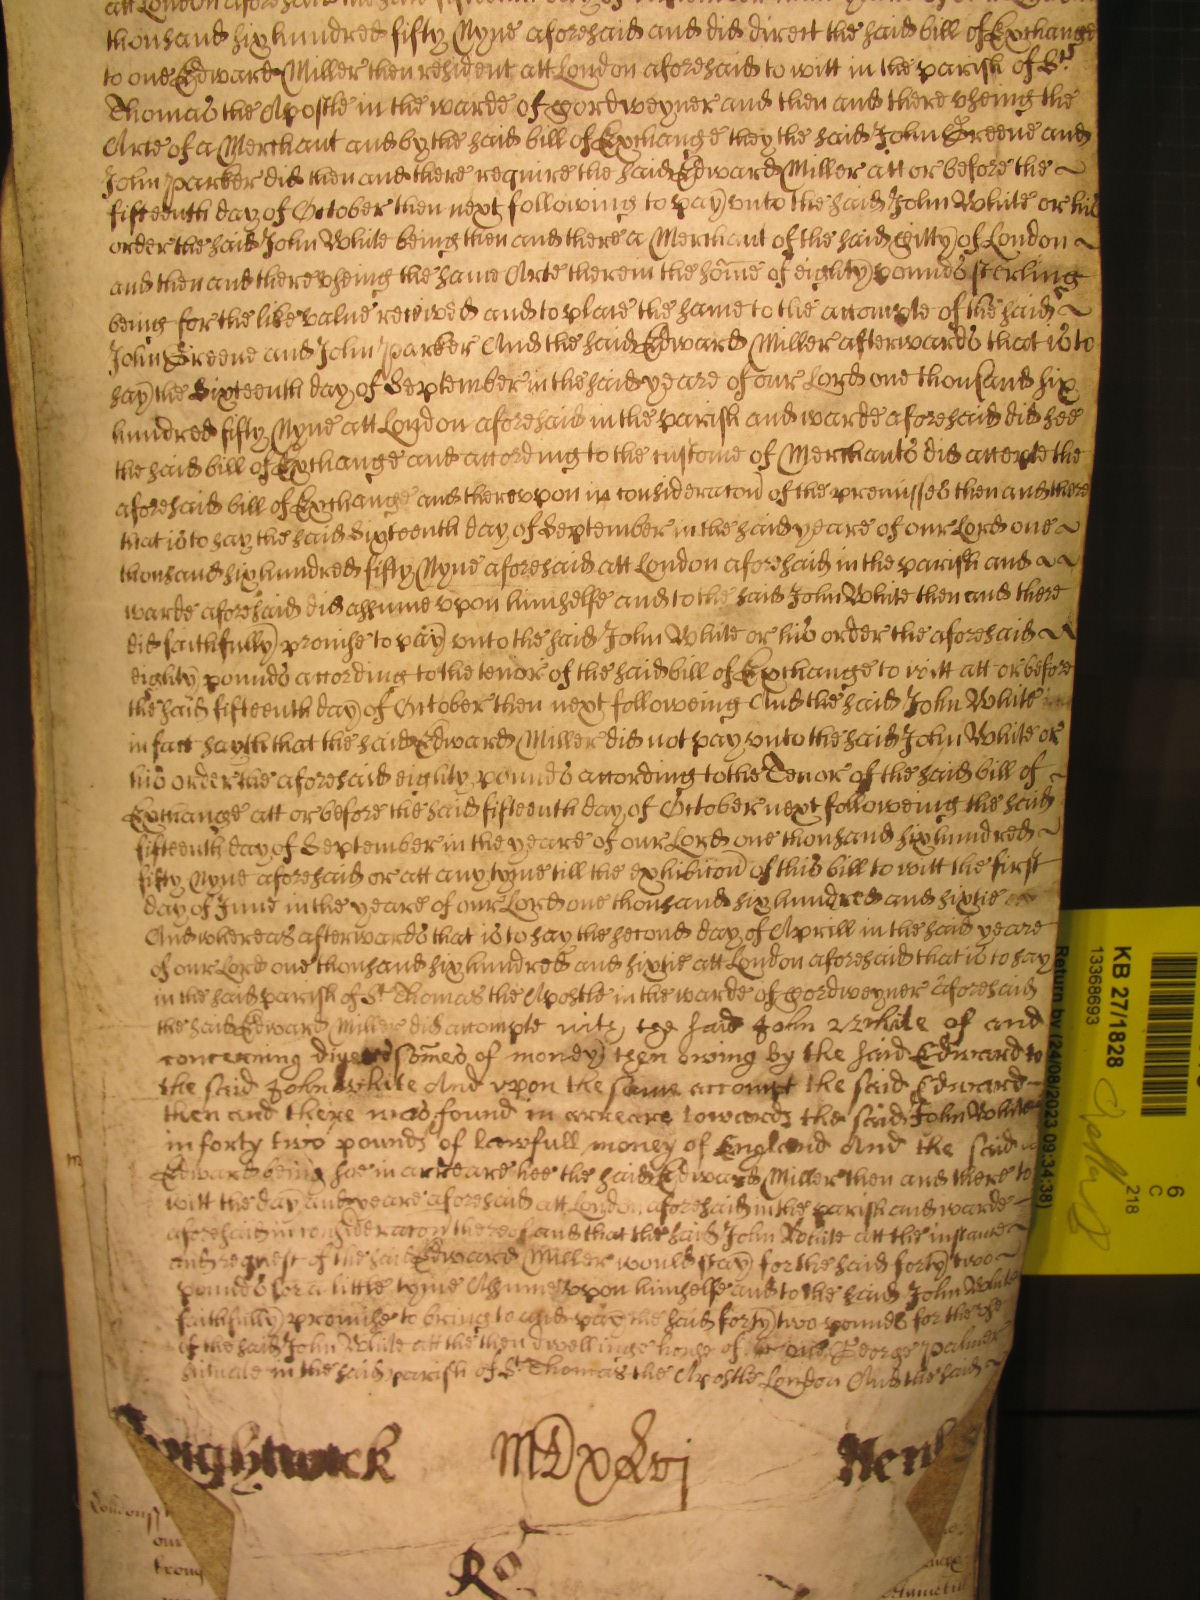 att London aforesaid the said fifteenth day of September
thousand six hundred fifty Nyne aforesaid and did direct the said bill of Exchange
to one Edward Miller then resident att London aforesaid to witt in the parish of St
Thomas the Apostle in the warde of Cordweyner and then and there vseing the
Arte of a Merchant and by the said bill of Exchange they the said John Greene and
John Parker did then and there require the said Edward Miller att or before the
fifteenth day of October then next following to pay vnto the said John White or his
order the said John White being then and there a Merchant of the said Citty of London
and then and there vseing the same Arte therein the some of eighty pounds sterling
being for the like value received and to place the same to the accompte of the said
John Greene and John Parker And the said Edward Miller afterwards that is to
say the Sixteenth day of September in the said yeare of our Lord one thousand six
hundred fifty Nyne att London aforesaid in the parish and warde aforesaid did see
the said bill of Exchange and according to the custome of Merchants did accepte the
aforesaid bill of Exchange and therevpon in consideracon of the premisses then and there
that is to say the said Sixteenth day of September in the said yeare of our Lord one
thousand six hundred fifty Nyne aforesaid att London aforesaid in the parish and
warde aforesaid did assume vpon himselfe and to the said John White then and there
did faithfully promise to pay vnto the said John White or his order the aforesaid
eighty pounds according to the tenor of the said bill of Exchange to witt att or before
the said fifteenth day of October then next followeing And the said John White
in fact sayth that the said Edward Miller did not pay vnto the said John White or
his order the aforesaid eighty pounds according to the Tenor of the said bill of
Exchange att or before the said fifteenth day of October next followeing the said
fifteenth day of September in the yeare of our Lord one thousand six hundred
fifty Nyne aforesaid or att any tyme till the exhibicon of this bill to witt the first
day of June in the yeare of our Lord one thousand six hundred and sixtie
And whereas afterwards that is to say the second day of Aprill in the said yeare
of our Lord one thousand six hundred and sixtie att London aforesaid that is to say
in the said parish of St Thomas the Apostle in the warde of Cordweyner aforesaid
the said Edward Miller did accompte with the said John White of and
concerning divers somes of money then owing by the said Edward to
the said John White And vpon the same accompt the said Edward
then and there was found in arreare towards the said John White
in forty two pounds of lawfull money of England And the said
Edward being soe in arreare hee the said Edward Miller then and there to
witt the day and yeare aforesaid att London aforesaid in the parish and warde
aforesaid in consideracon thereof and that the said John White att the instance
and request of the said Edward Miller would stay for the said forty two
pounds for a little tyme Assumed vpon himselfe and to the said John White
faithfully promise to bring to and pay the said forty two pounds for the vse
of the said John White att the then dwellinge house of one George Palmer
situate in the said parish of St Thomas the Apostle London And the said
MDxLvj
Henl
London ss
our
KB 27/1828
13368693
Return by (24/08/2023 09:34:38)
6
C
218